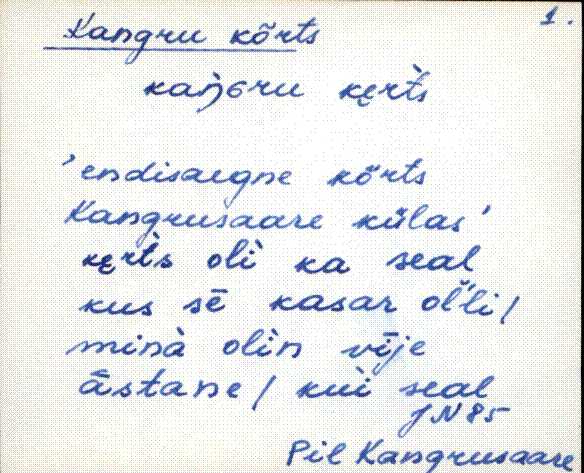 1.
Kangru kõrts
kaŋ̀ɢru kẹrt̀s
'endisaegne kõrts
Kangrusaare külas'
kẹrt̀s olì ka seal
kus sē kasar ol̀'li/
minà olìn vīje
āstane/ kuì seal
JN 85
Pil Kangrusaare